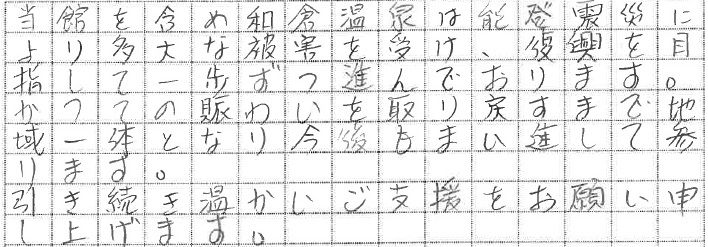 当館を含め和倉温泉は能登震災に
より多大な被害を受け、復興を目
指して一歩ずつ進んでおります。
かつての賑わいを取り戻すまで地
域一体となり今後もまい進して参
ります。
引き続き温かいご支援をお願い申
し上げます。